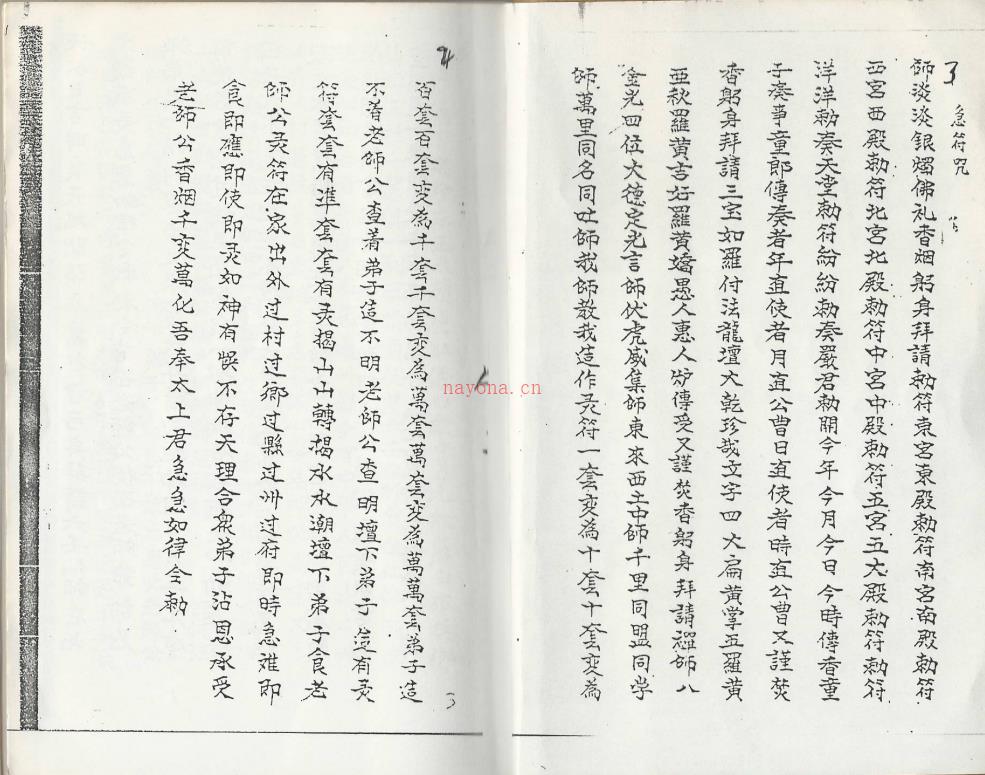 3
急符咒
师淡淡銀燭佛礼香烟躬身拜請勅符東宮東殿勅符南宮南殿勅符
西宮西殿勅符北宮北殿勅符中宮中殿勅符五宮五大殿勅符勅符
洋洋勅奏天堂勅符紛紛勅奏嚴君勅開今年今月今日今時傳香童
子奏事童郎傳奏者年直使者月直公曹日直使者時直公曹又謹焚
香躬身拜請三宝如羅付法龍壇大乾珍哉文字四大扁黄掌五羅黄
亞秋羅黄吉好羅黄嬌愚人惠人妙傳受又謹焚香躬身拜請禪師八
金光四位大德定光言師伏虎威集師東來西土中師千里同盟同学
師萬里同名同吐師我師教我造作灵符一套变為十套十套变為
百套百套变為千套千套变為萬套萬套变為萬萬套弟子造
不着老師公查着弟子造不明老師公查明壇下弟子造有灵
符套套有準套套有灵揭山山轉揭水水潮壇下弟子食老
師公灵符在家出外过村过鄉过縣过州过府即時急难即
食即應即使即灵如神有悞不存天理合衆弟子沾恩承受
老師公香烟千变萬化吾奉太上君急急如律令勅
nayona.cn